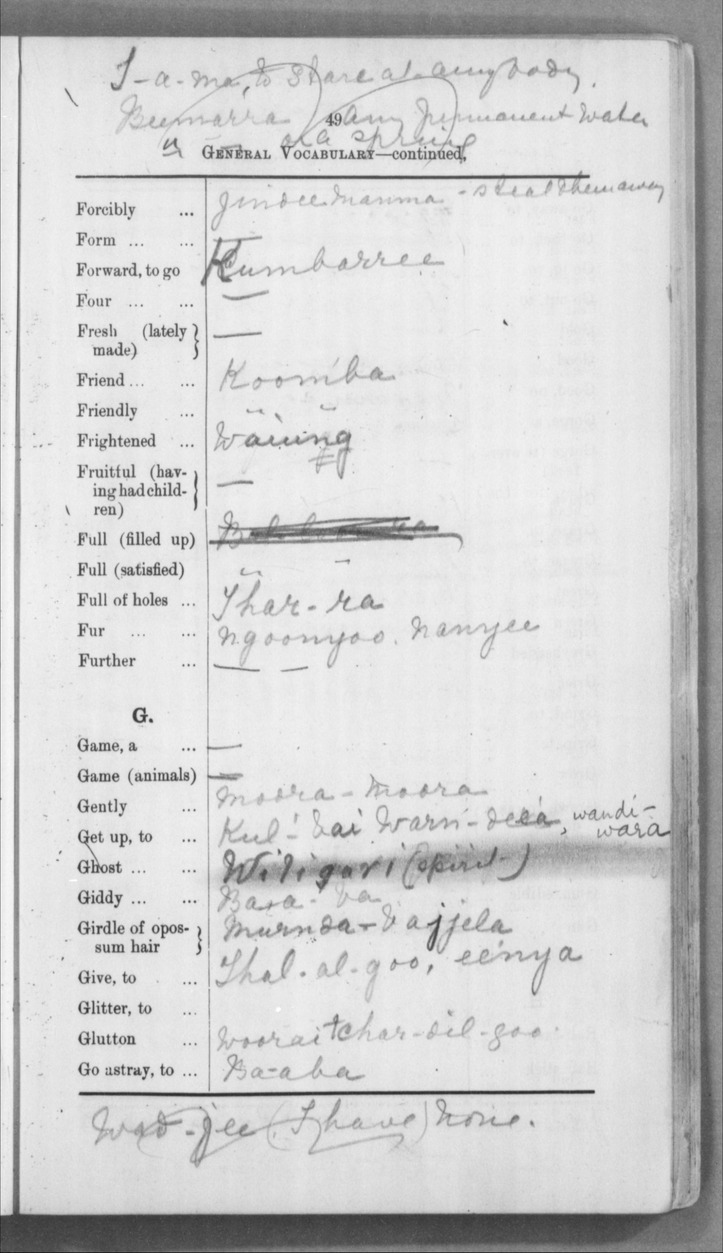 I-a-ma, to stare at anybody.
Beemarra (Any permanent water
49
or a spring)
GENERAL VOCABULARY—continued.
Forcibly ... Jindee manma - steal them away
Form ... ...
Forward, to go Kumbarree
Four ... ... —
Fresh (lately made) —
Friend ... ... Koomba
Friendly ...
Frightened ... Wäiung
Fruitful (having had children) —
Full (filled up)
Full (satisfied)
Full of holes ... Thar-ra
Fur ... ... ngoonyoo. nanyee
Further ... — —
G.
Game, a ... —
Game (animals) —
Gently ... moora-moora
Get up, to ... Kul-bai warn-deea, wandi-wara
Ghost ... ... Wiligari (spirit)
Giddy ... ... Bara-ba
Girdle of opossum hair murnda-bajjela
Give, to ... Thal-al-goo, eenya
Glitter, to ...
Glutton ... wooraitchar-dil-goo.
Go astray, to ... Ba-aba
Wad-jee (I have) none.